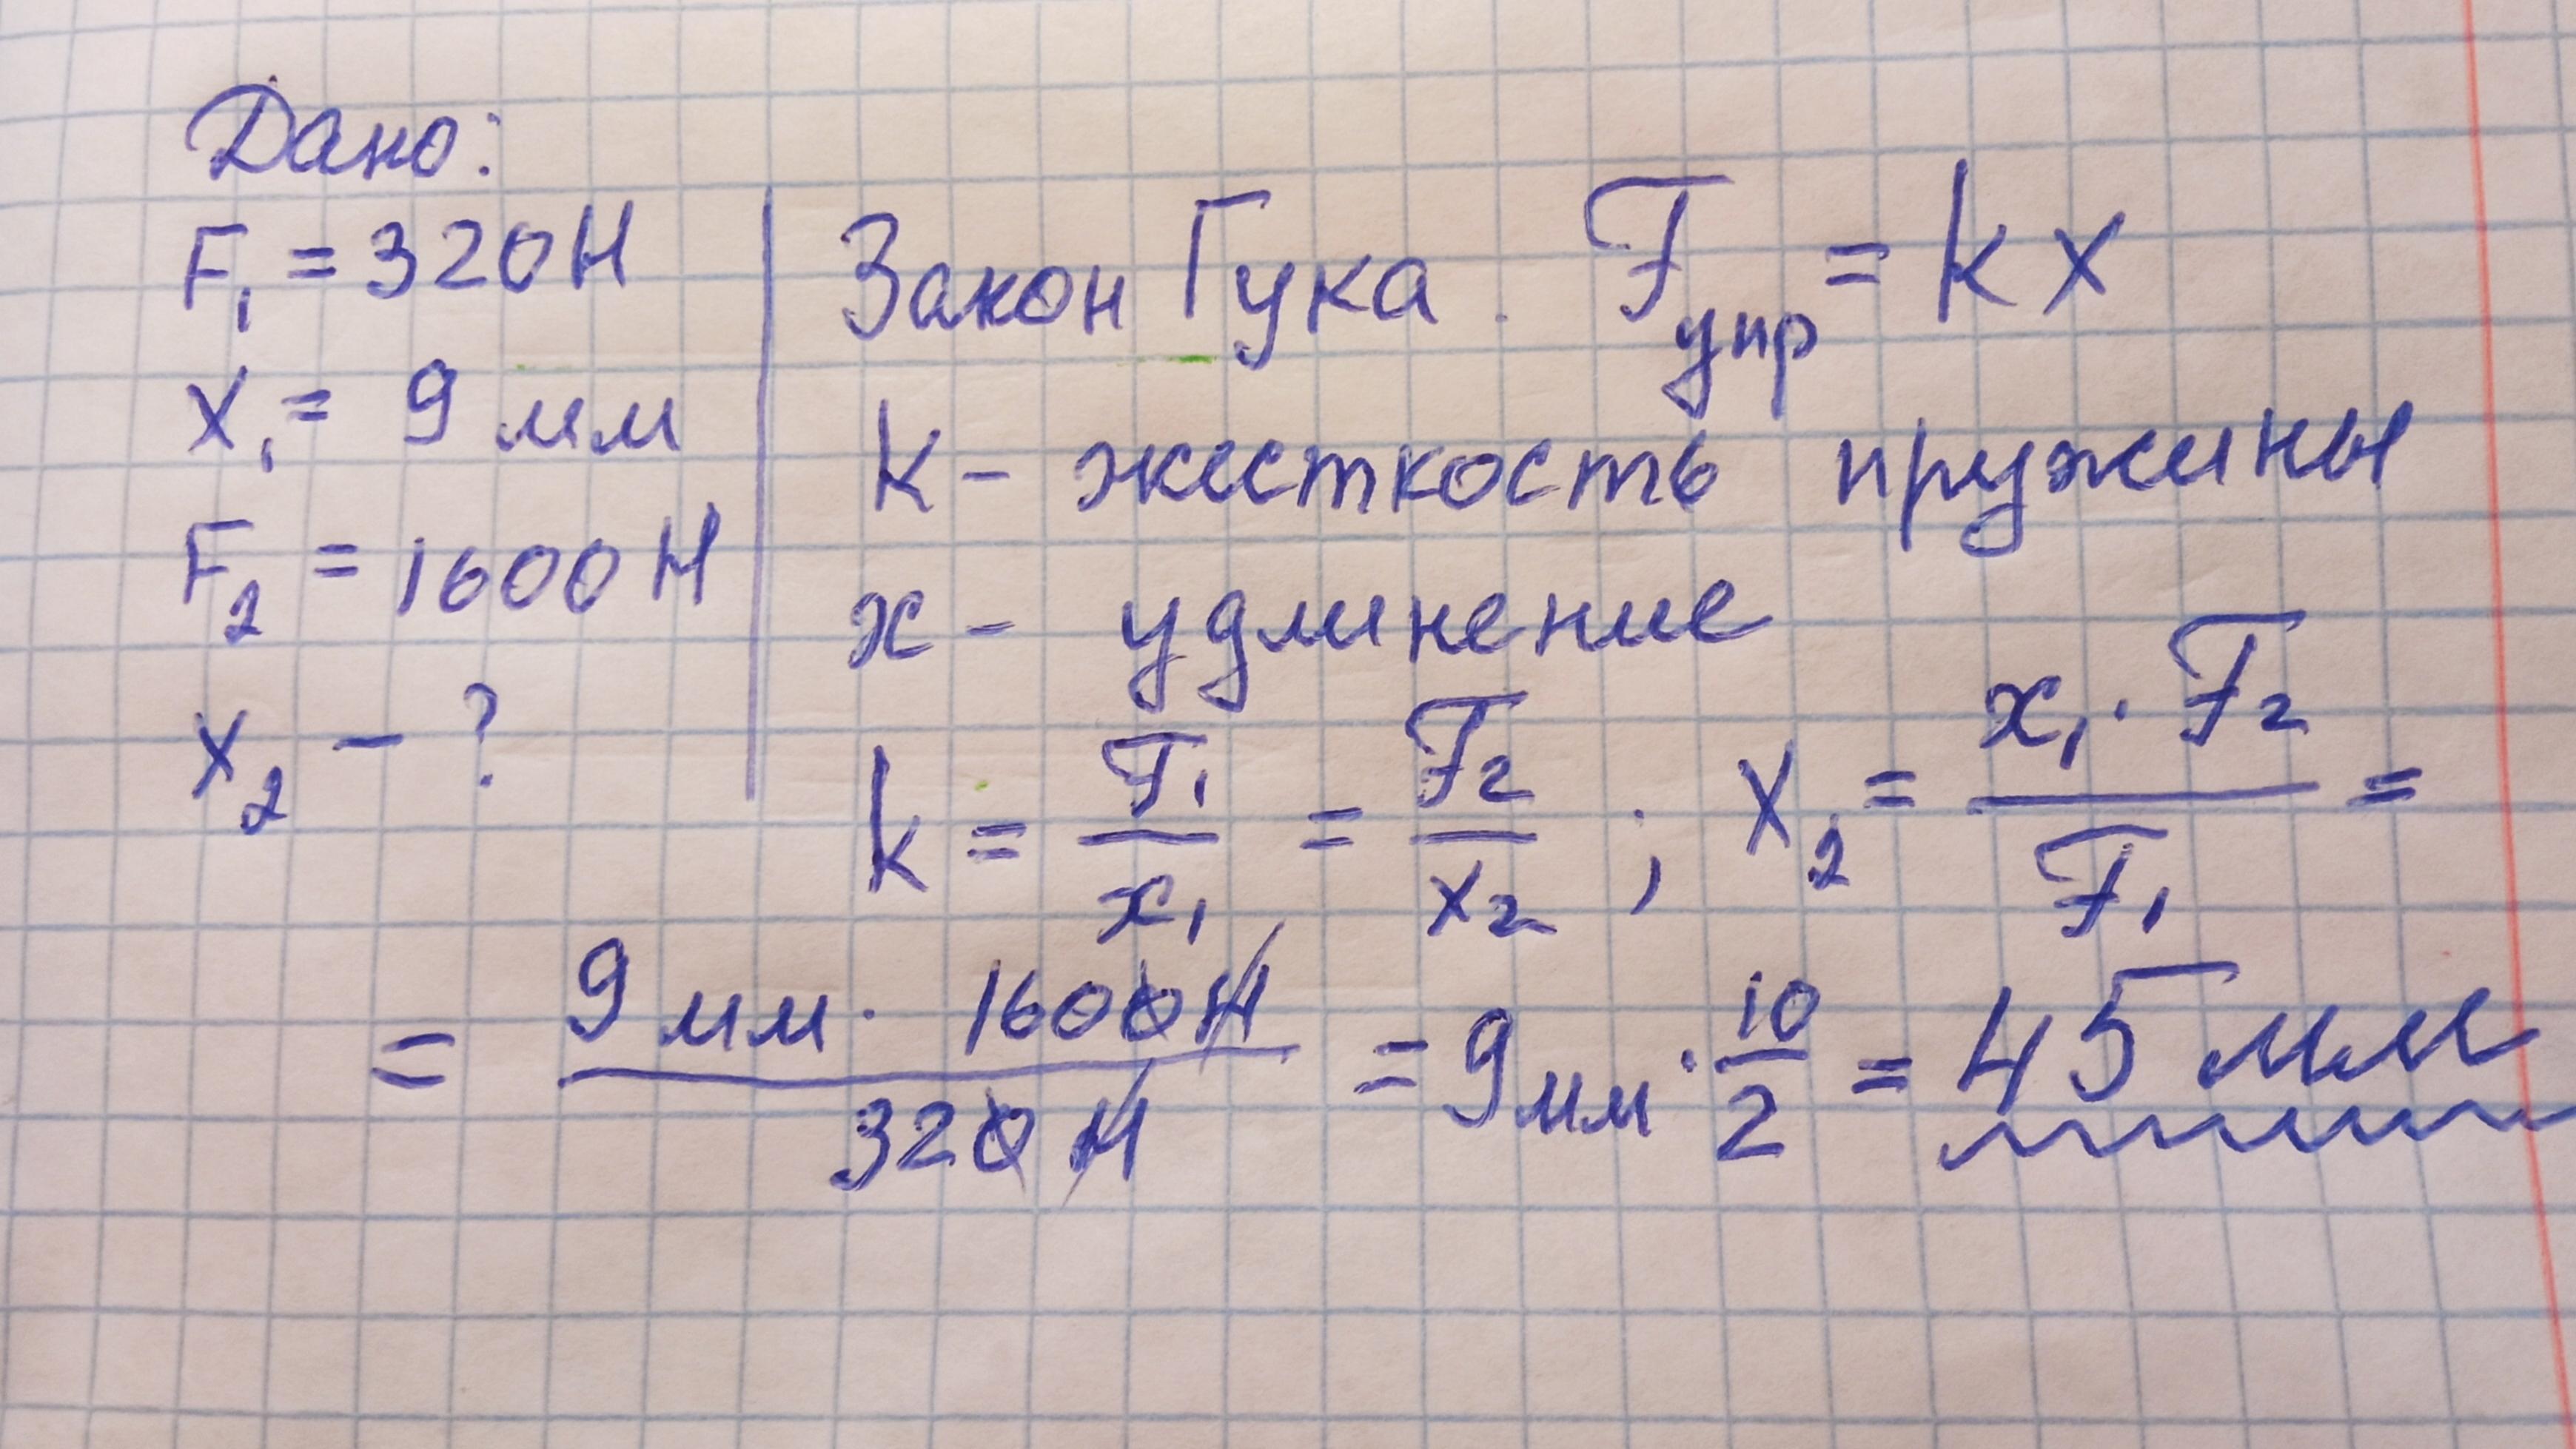 Дано:
F₁ = 320 Н
x₁ = 9 мм
F₂ = 1600 Н
x₂ - ?
Закон Гука. Fупр = kx
k - жесткость пружины
x - удлинение
k = F₁/x₁ = F₂/x₂ ; x₂ = x₁·F₂/F₁ =
= 9 мм · 1600Н/320 Н = 9 мм · 10/2 = 45 мм